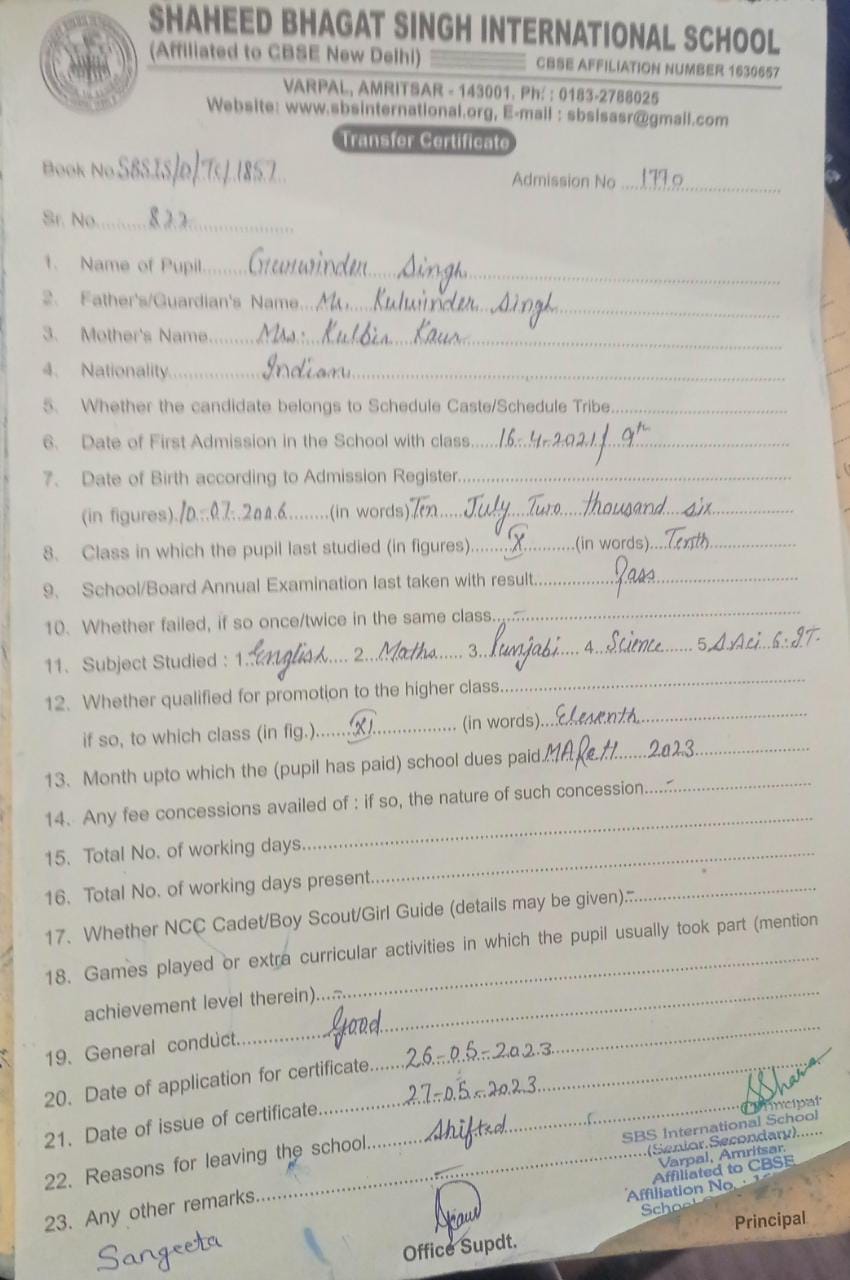 SHAHEED BHAGAT SINGH INTERNATIONAL SCHOOL
(Affiliated to CBSE New Delhi)
CBSE AFFILIATION NUMBER 1630657
VARPAL, AMRITSAR - 143001. Ph. : 0183-2788025
Website: www.sbsinternational.org, E-mail : sbsisasr@gmail.com
Transfer Certificate
Book No SBSIS/D/TC/1857
Admission No 1770
Sr. No. 822
1. Name of Pupil Gurwinder Singh
2. Father's/Guardian's Name Mr. Kulwinder Singh
3. Mother's Name Mrs. Kulbir Kaur
4. Nationality Indian
5. Whether the candidate belongs to Schedule Caste/Schedule Tribe
6. Date of First Admission in the School with class 16-4-2021/ 9th
7. Date of Birth according to Admission Register
(in figures) 10-07-2006 (in words) Ten July Two thousand six
8. Class in which the pupil last studied (in figures) X (in words) Tenth
9. School/Board Annual Examination last taken with result Pass
10. Whether failed, if so once/twice in the same class -
11. Subject Studied : 1. English 2. Maths 3. Punjabi 4. Science 5. S.Sci 6. IT.
12. Whether qualified for promotion to the higher class
if so, to which class (in fig.) XI (in words) Eleventh
13. Month upto which the (pupil has paid) school dues paid MARCH 2023
14. Any fee concessions availed of : if so, the nature of such concession -
15. Total No. of working days
16. Total No. of working days present
17. Whether NCC Cadet/Boy Scout/Girl Guide (details may be given) -
18. Games played or extra curricular activities in which the pupil usually took part (mention
achievement level therein) -
19. General conduct Good
20. Date of application for certificate 26-05-2023
21. Date of issue of certificate 27-05-2023
22. Reasons for leaving the school Shifted
23. Any other remarks -
Principal
SBS International School
(Senior Secondary)
Varpal, Amritsar.
Affiliated to CBSE
Affiliation No.
School
Sangeeta
Office Supdt.
Principal